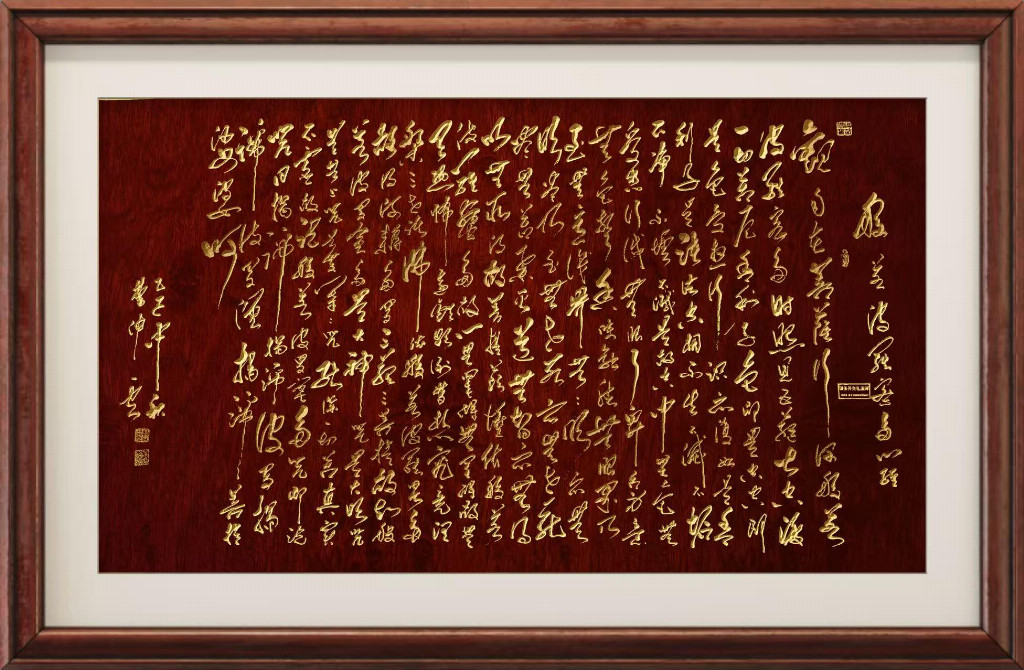 般若波羅蜜多心經
觀自在菩薩行深般若
波羅蜜多時照見五蘊皆空度
一切苦厄舍利子色即是空空即
是色受想行識亦復如是舍
利子是諸法空相不生不滅不垢
不淨不增不減是故空中無色無
受想行識無眼耳鼻舌身意
無色聲香味觸法無眼界乃
至無意識界無無明亦無無
明盡乃至無老死亦無老死
盡無苦集滅道無智亦無得
以無所得故菩提薩埵依般若
波羅蜜多故心無罣礙無罣礙故無
有恐怖遠離顛倒夢想究竟涅
槃三世諸佛依般若波羅蜜多
故得阿耨多羅三藐三菩提故知般
若波羅蜜多是大神咒是大明咒
是無上咒是無等等咒能除一切苦真實
不虛故說般若波羅蜜多咒即說
咒曰揭諦揭諦波羅揭
諦波羅僧揭諦菩提
薩婆訶
乙巳中秋